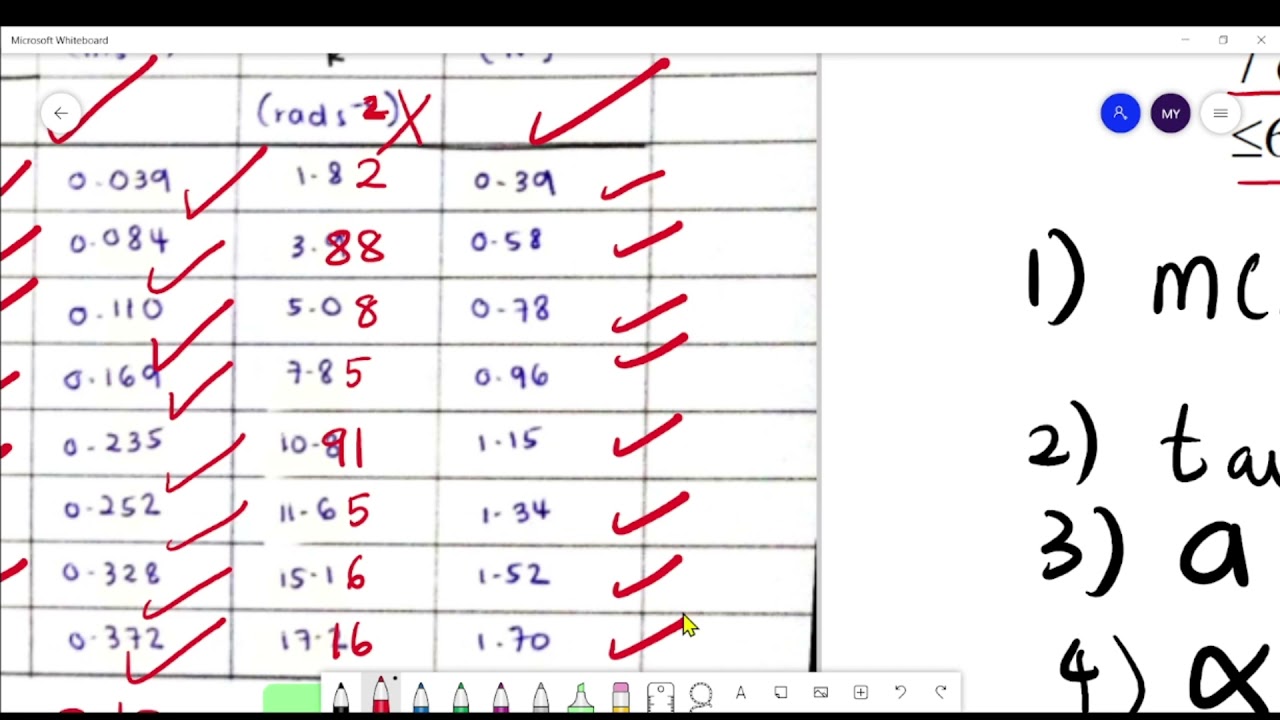 Microsoft Whiteboard
MY
(rads⁻²) X
0.039 1.82 0.39
0.084 3.88 0.58
0.110 5.08 0.78
0.169 7.85 0.96
0.235 10.91 1.15
0.252 11.65 1.34
0.328 15.16 1.52
0.372 17.16 1.70
≤6
1) m(
2) ta
3) a
4) α
A